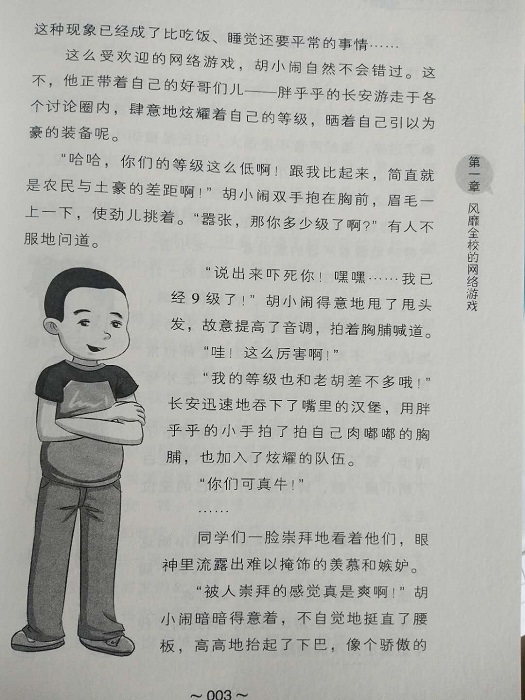 这种现象已经成了比吃饭、睡觉还要平常的事情……
这么受欢迎的网络游戏，胡小闹自然不会错过。这
不，他正带着自己的好哥们儿——胖乎乎的长安游走于各
个讨论圈内，肆意地炫耀着自己的等级，晒着自己引以为
豪的装备呢。
“哈哈，你们的等级这么低啊！跟我比起来，简直就
是农民与土豪的差距啊！”胡小闹双手抱在胸前，眉毛一
上一下，使劲儿挑着。“嚣张，那你多少级了啊？”有人不
服地问道。
“说出来吓死你！嘿嘿……我已
经9级了！”胡小闹得意地甩了甩头
发，故意提高了音调，拍着胸脯喊道。
“哇！这么厉害啊！”
“我的等级也和老胡差不多哦！”
长安迅速地吞下了嘴里的汉堡，用胖
乎乎的小手拍了拍自己肉嘟嘟的胸
脯，也加入了炫耀的队伍。
“你们可真牛！”
……
同学们一脸崇拜地看着他们，眼
神里流露出难以掩饰的羡慕和嫉妒。
“被人崇拜的感觉真是爽啊！”胡
小闹暗暗得意着，不自觉地挺直了腰
板，高高地抬起了下巴，像个骄傲的
第一章 风靡全校的网络游戏
～003～